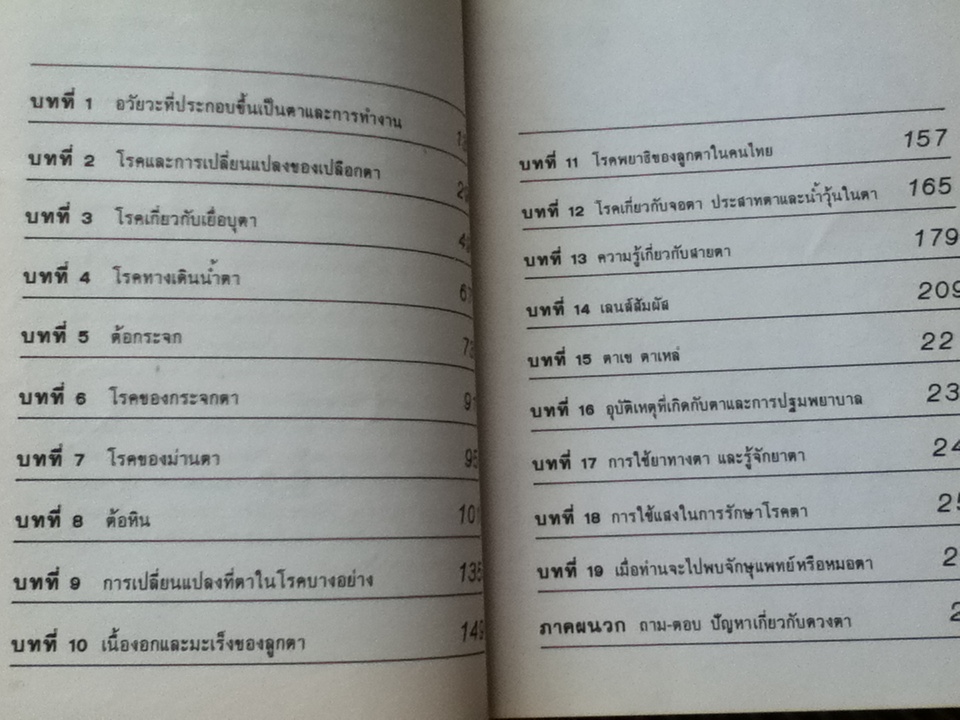 บทที่ 1 อวัยวะที่ประกอบขึ้นเป็นตาและการทำงาน
บทที่ 2 โรคและการเปลี่ยนแปลงของเปลือกตา
บทที่ 3 โรคเกี่ยวกับเยื่อบุตา
บทที่ 4 โรคทางเดินน้ำตา
บทที่ 5 ต้อกระจก
บทที่ 6 โรคของกระจกตา 91
บทที่ 7 โรคของม่านตา 95
บทที่ 8 ต้อหิน 101
บทที่ 9 การเปลี่ยนแปลงที่ตาในโรคบางอย่าง 135
บทที่ 10 เนื้องอกและมะเร็งของลูกตา 149
บทที่ 11 โรคพยาธิของลูกตาในคนไทย 157
บทที่ 12 โรคเกี่ยวกับจอตา ประสาทตาและน้ำวุ้นในตา 165
บทที่ 13 ความรู้เกี่ยวกับสายตา 179
บทที่ 14 เลนส์สัมผัส 209
บทที่ 15 ตาเข ตาเหล่ 22
บทที่ 16 อุบัติเหตุที่เกิดกับตาและการปฐมพยาบาล 23
บทที่ 17 การใช้ยาทางตา และรู้จักยาตา 24
บทที่ 18 การใช้แสงในการรักษาโรคตา 25
บทที่ 19 เมื่อท่านจะไปพบจักษุแพทย์หรือหมอตา 2
ภาคผนวก ถาม-ตอบ ปัญหาเกี่ยวกับดวงตา 2